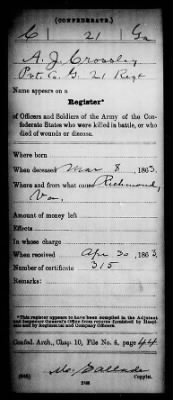 (CONFEDERATE.)
C 21 Ga
A. J. Crossley
Pvt. Co. G. 21 Regt
Name appears on a
Register*
of Officers and Soldiers of the Army of the Con-
federate States who were killed in battle, or who
died of wounds or disease.
Where born
When deceased Mar 8, 1863.
Where and from what cause Richmond,
Va.
Amount of money left
Effects
In whose charge
When received Apr 30, 1863.
Number of certificate 315
Remarks:
*This register appears to have been compiled in the Adjutant
and Inspector General's Office from returns furnished by Hospi-
tals and by Regimental and Company Officers.
Confed. Arch., Chap. 10, File No. 6, page 44
Copyist.